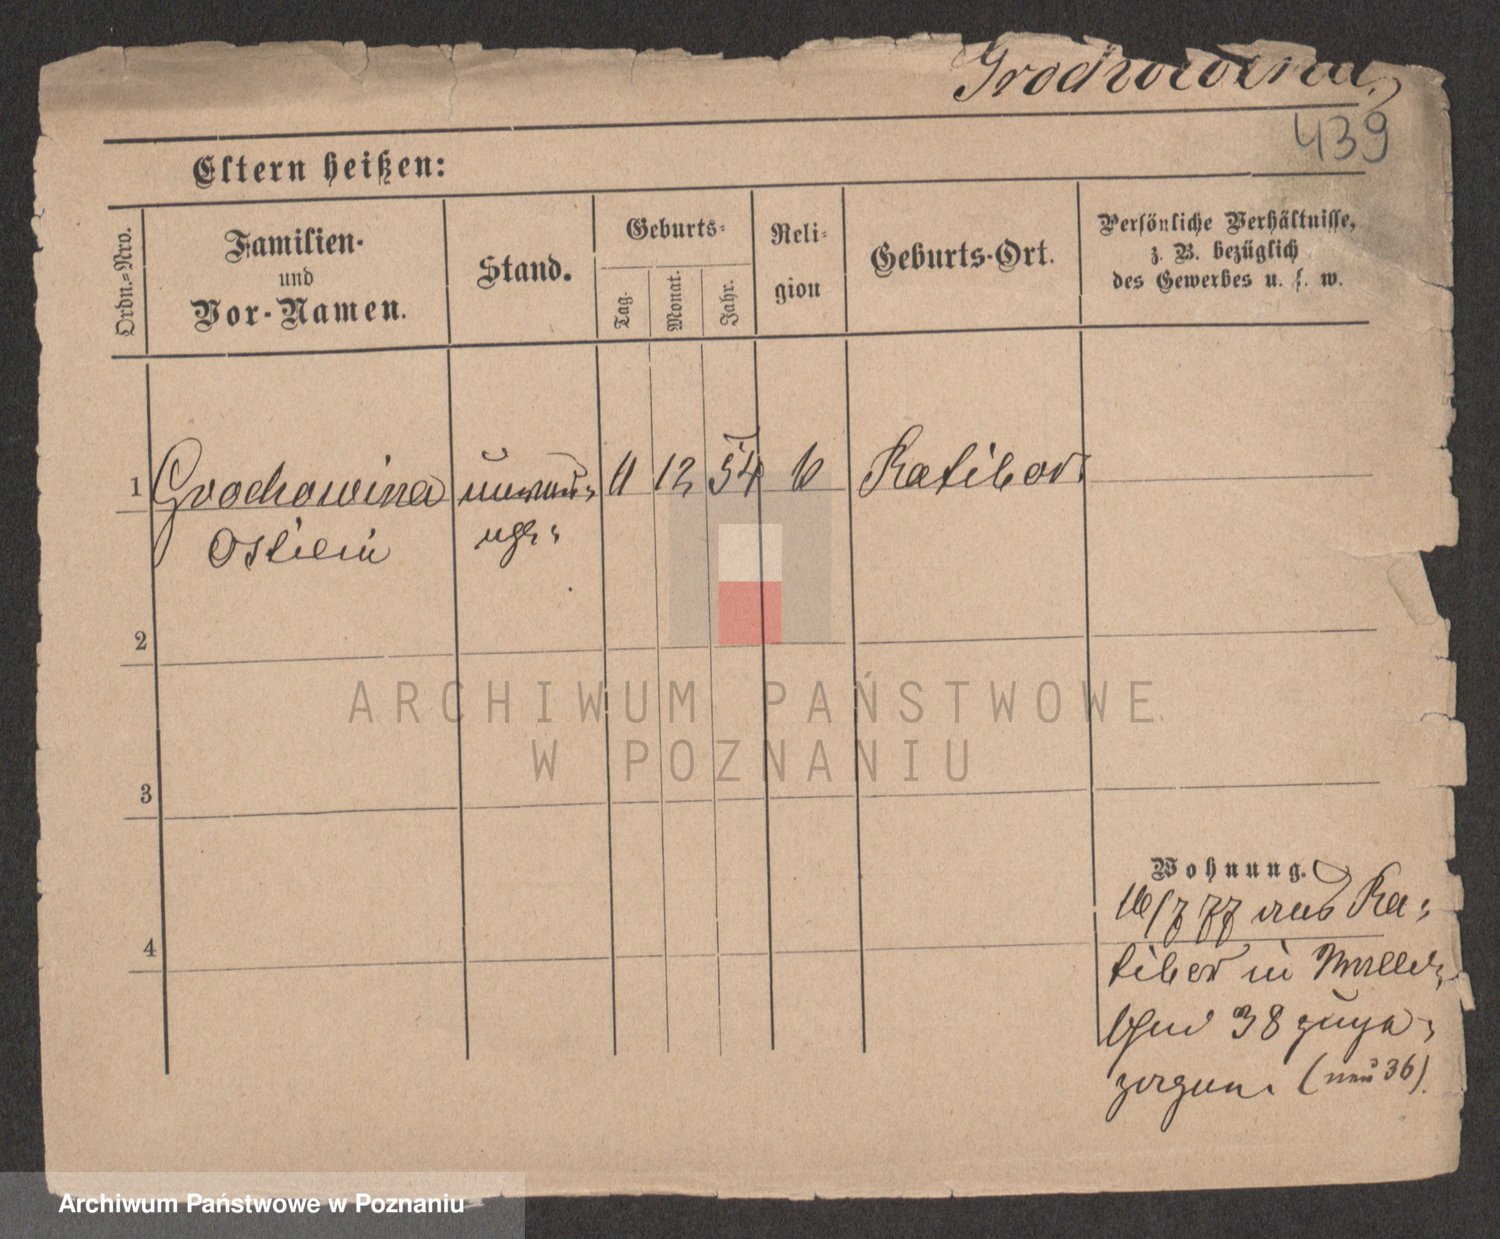 Grochowina,
439
Eltern heißen:
Ordn.=Nro.
Familien-
und
Vor-Namen.
Stand.
Geburts-
Tag.
Monat.
Jahr.
Reli-
gion
Geburts-Ort.
Persönliche Verhältnisse,
z. B. bezüglich
des Gewerbes u. s. w.
1 Grochowina 12 54 Ratibor
2
3
4
Wohnung.
16/7 77 aus Ra-
tibor in
38 zuge-
zogen. (neu 36).
ARCHIWUM PAŃSTWOWE
W POZNANIU
Archiwum Państwowe w Poznaniu